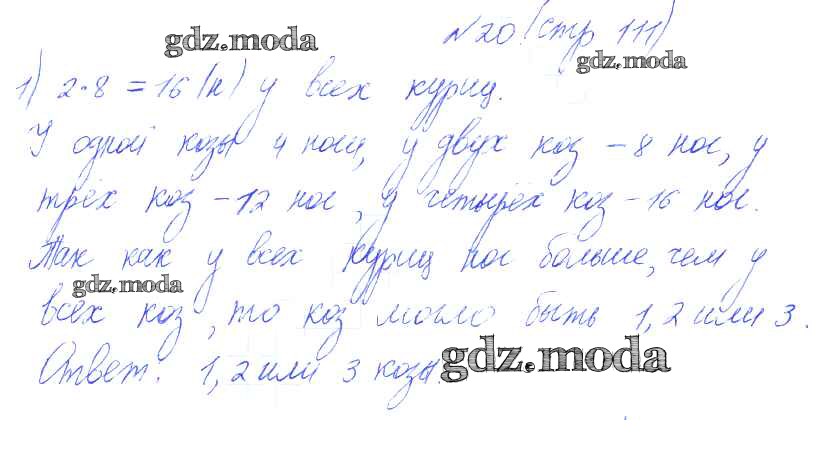 №20 (стр 111)
gdz.moda
gdz.moda
1) 2·8 = 16 (н) у всех куриц.
У одной козы 4 ноги, у двух коз – 8 ног, у
трёх коз – 12 ног, у четырёх коз – 16 ног.
Так как у всех куриц ног больше, чем у
gdz.moda
всех коз, то коз могло быть 1, 2 или 3.
Ответ. 1, 2 или 3 козы.
gdz.moda